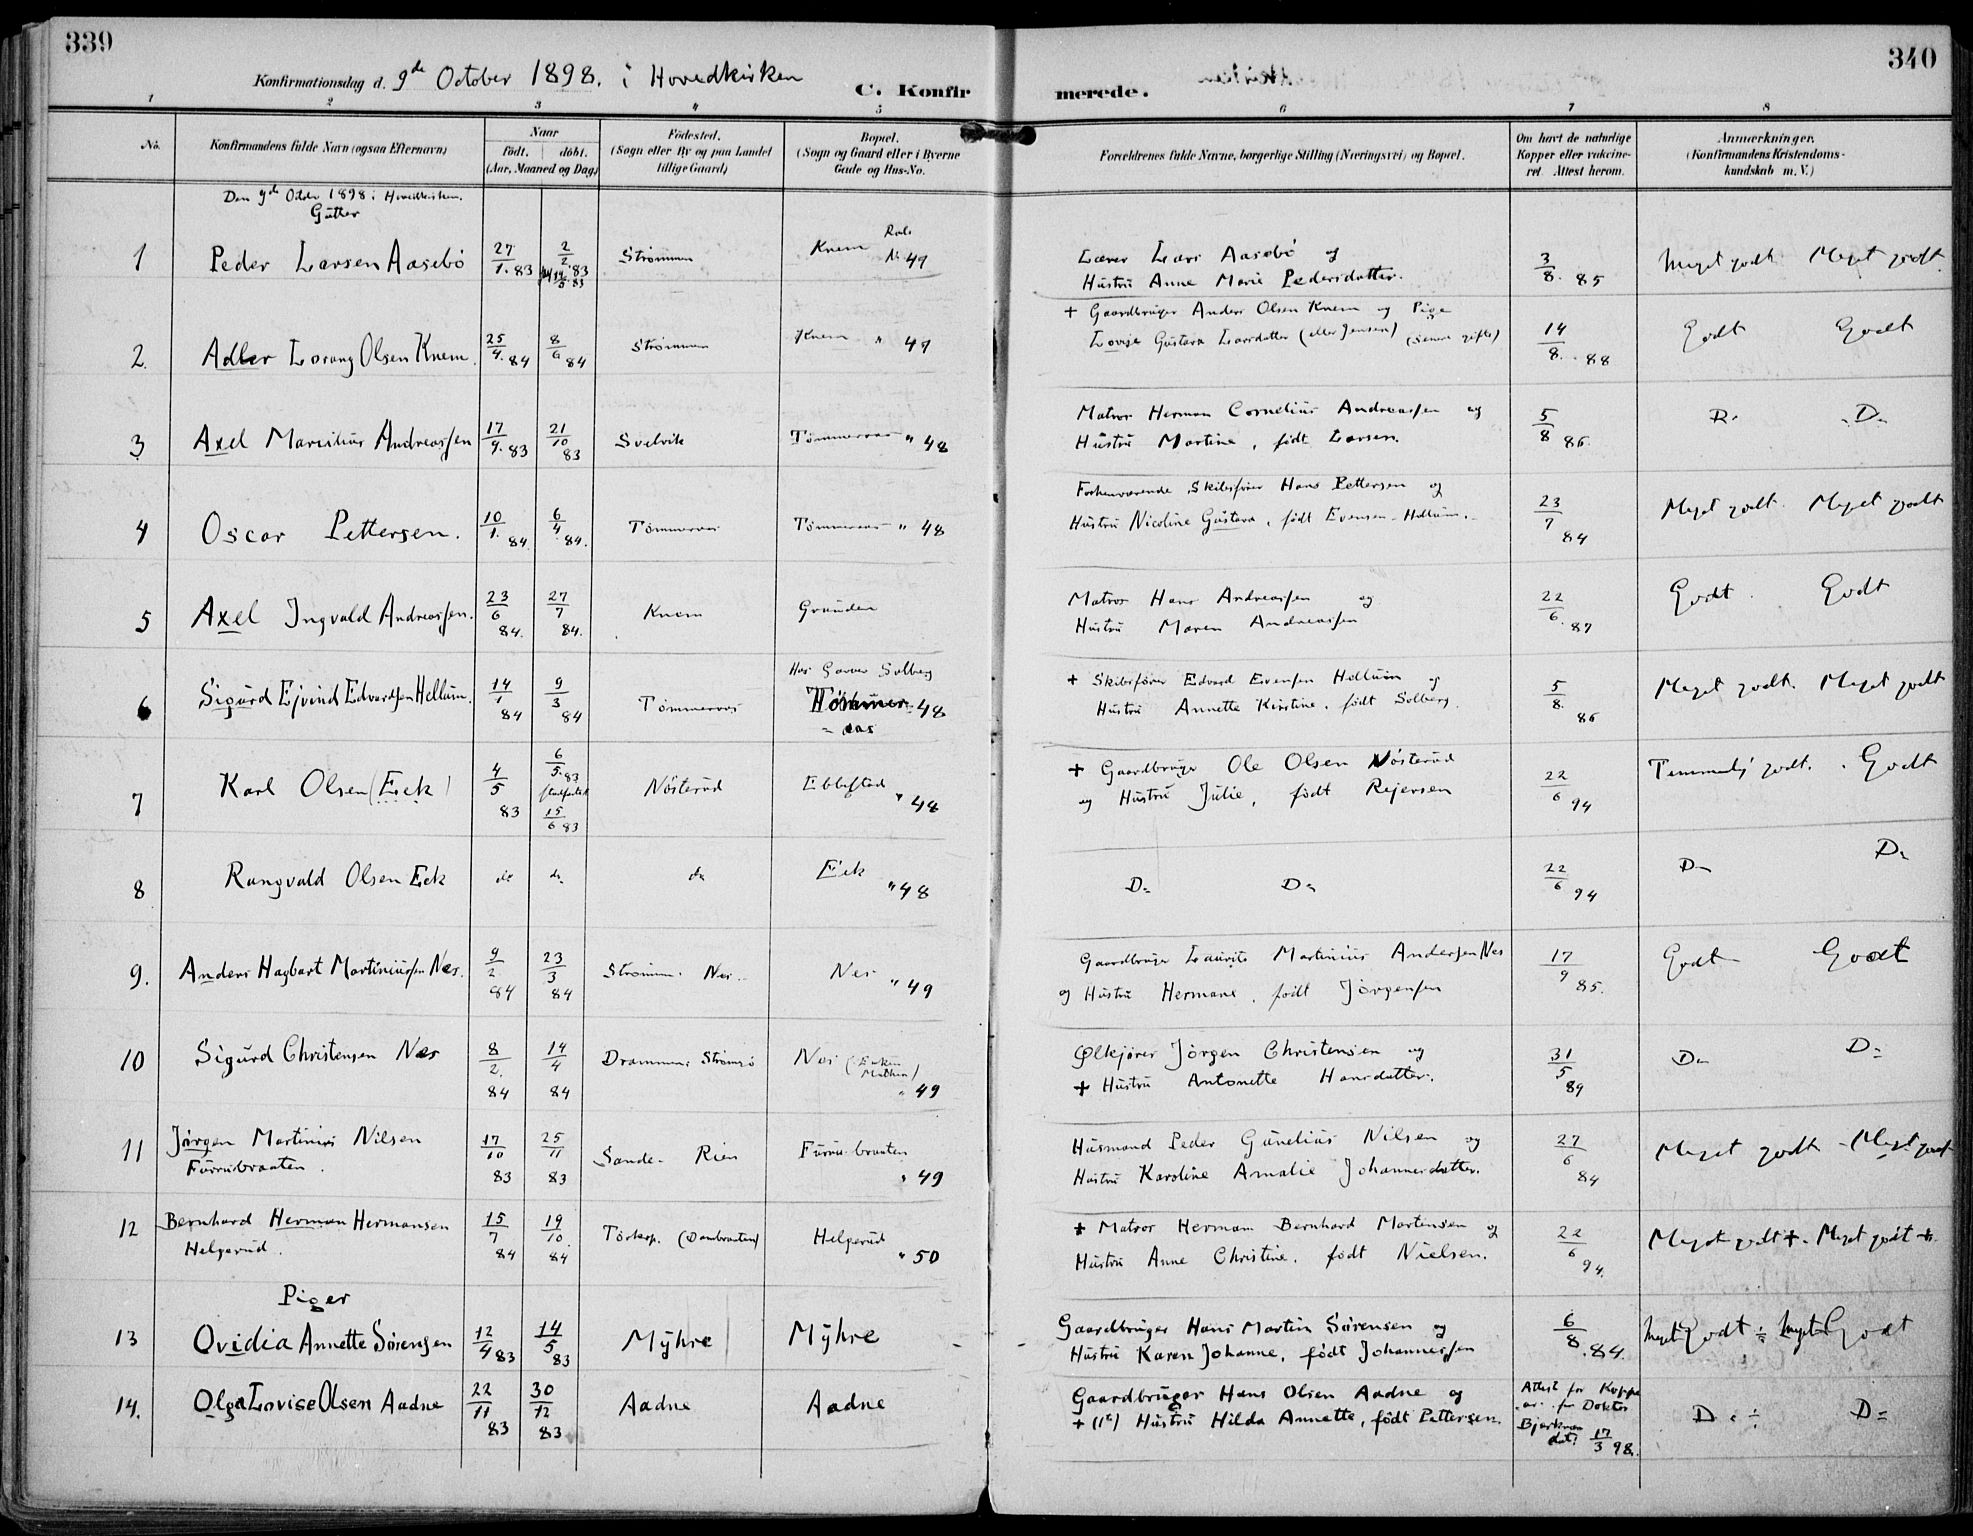 339
340
Konfirmationsdag d. 9de October 1898. i Hovedkirken
C. Konfirmerede.
1 2 3 4 5 6 7 8
No.
Konfirmandens fulde Navn (ogsaa Efternavn)
Naar
födt. döbt.
(Aar, Maaned og Dag)
Födested.
(Sogn eller By og paa Landet
tillige Gaard)
Bopæl.
(Sogn og Gaard eller i Byerne
Gade og Hus-No.
Forældrenes fulde Navne, borgerlige Stilling (Næringsvei) og Bopæl.
Om havt de naturlige
Kopper eller vakcine-
ret Attest herom.
Anmærkninger.
(Konfirmandens Kristendoms-
kundskab m. V.)
Den 9de Octbr 1898 i Hovedkirken.
Gutter
1 Peder Larsen Aasebö 27/1. 83 2/2. 83 Strömmen Knem 49
Lærer Lars Aasebö og
Hustru Anne Marie Pedersdatter. 3/8. 85 Meget godt Meget godt
2. Adler Lorang Olsen Knem. 25/4. 84 8/6 84 Strömmen Knem " 49
+ Gaardbruger Anders Olsen Knem og Pige
Lovise Gustava Larsdatter (eller Jensen) (senere gift) 14/8. 88 Godt Godt
3 Axel Marcilius Andreassen 17/9. 83 21/10 83 Svelvik Tömmeraas " 48
Matros Herman Cornelius Andreassen og
Hustru Martine, födt Larsen. 5/8 86. D. D.
4 Oscar Pettersen. 10/1. 84 6/4 84. Tömmeraas Tömmeraas " 48
Forhenværende Skibsförer Hans Pettersen og
Hustru Nicoline Gustava, födt Evensen Hellum. 23/7 84 Meget godt. Meget godt
5 Axel Ingvald Andreassen. 23/6 84. 27/7 84. Knem Grunden
Matros Hans Andreassen og
Hustru Maren Andreassen 22/6. 87 Godt. Godt
6 Sigurd Ejvind Edvardsen Hellum. 14/1 84 9/3 84 Tömmeraas Hos Garver Solberg
Tömmer- 48
= aas
+ Skibsförer Edvard Evensen Hellum og
Hustru Annette Kirstine, födt Solberg. 5/8. 86 Meget godt. Meget godt
7 Karl Olsen (Eek) 4/5 83 6/5. 83 15/6 83 Nösterud Ebbestad " 48
+ Gaardbruger Ole Olsen Nösterud
og Hustru Julie, födt Rejersen 22/6 94 Temmelig godt. Godt
8 Rangvald Olsen Eek do do do Eek " 48
D= D= 22/6 94 D= D=
9. Anders Hagbart Martiniussen Nes. 9/2 84 23/3 84 Strömm. Nes. Nes " 49
Gaardbruger Laurits Martinius Andersen Nes
og Hustru Hermane, födt Jörgensen 17/9 85. Godt Godt
10 Sigurd Christensen Nes 8/2. 84 14/4 84 Drammen: Strömsö Nes " 49
Ölkjörer Jörgen Christensen og
+ Hustru Antonette Hansdatter. 31/5 89 D= D=
11 Jörgen Martinius Nilsen
Furrubraaten. 17/10 83 25/11 83 Sande- Rien Furrubraaten " 49
Husmand Peder Gunelius Nilsen og
Hustru Karoline Amalie Johannesdatter. 27/6 84 Meget godt - Meget godt
12 Bernhard Herman Hermansen
Helgerud. 15/7 84 19/10 84 Törkop. (Dambraaten) Helgerud " 50
+ Matros Herman Bernhard Mortensen og
Hustru Anne Christine, födt Nielsen. 22/6 94. Meget godt +. Meget godt +.
Piger
13 Ovidia Annette Sörensen 12/4 83 14/5 83 Mÿhre Mÿhre
Gaardbruger Hans Martin Sörensen og
Hustru Karen Johanne, födt Johannessen 6/8. 84. Meget Godt ÷ Meget Godt
14. Olga Lovise Olsen Aadne 22/11 83 30/12 83 Aadne Aadne
Gaardbruger Hans Olsen Aadne og
+ (1ste) Hustru Hilda Annette, födt Pettersen. Attest for Koppe
fra Doktor
Bjerknæs
dat. 17/3 98. D. ÷ D=